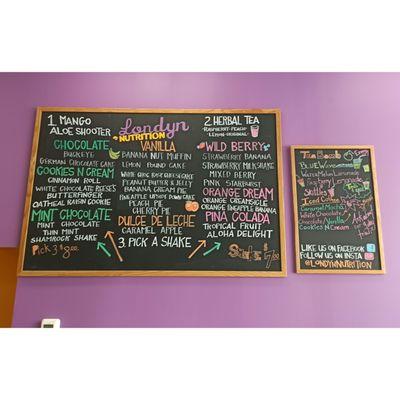 1. MANGO
ALOE SHOOTER
Londyn
NUTRITION
2. HERBAL TEA
RASPBERRY-PEACH-
LEMON-ORIGINAL
CHOCOLATE
BUCKEYE
GERMAN CHOCOLATE CAKE
COOKIES N CREAM
CINNAMON ROLL
WHITE CHOCOLATE REESES
BUTTERFINGER
OATMEAL RAISIN COOKIE
MINT CHOCOLATE
MINT CHOCOLATE
THIN MINT
SHAMROCK SHAKE
Pick 3 $
VANILLA
BANANA NUT MUFFIN
LEMON POUND CAKE
PEANUT BUTTER & JELLY
BANANA CREAM PIE
PINEAPPLE UPSIDE DOWN CAKE
PEACH PIE
CHERRY PIE
DULCE DE LECHE
CARAMEL APPLE
3. PICK A SHAKE
WILD BERRY
STRAWBERRY BANANA
STRAWBERRY SHAKE
MIXED BERRY
PINK STARBURST
ORANGE DREAM
ORANGE CREAMSICLE
ORANGE PINEAPPLE BANANA
PINA COLADA
TROPICAL FRUIT
ALOHA DELIGHT
Tea Bombs
Blue Wave
Watermelon Lemonade
Raspberry Lemonade
Skittles
Iced Coffee
Caramel Mocha
White Chocolate
Chocolate Vanilla
Cookies N Cream
LIKE US ON FACEBOOK
FOLLOW US ON INSTA
@LONDYNNUTRITION